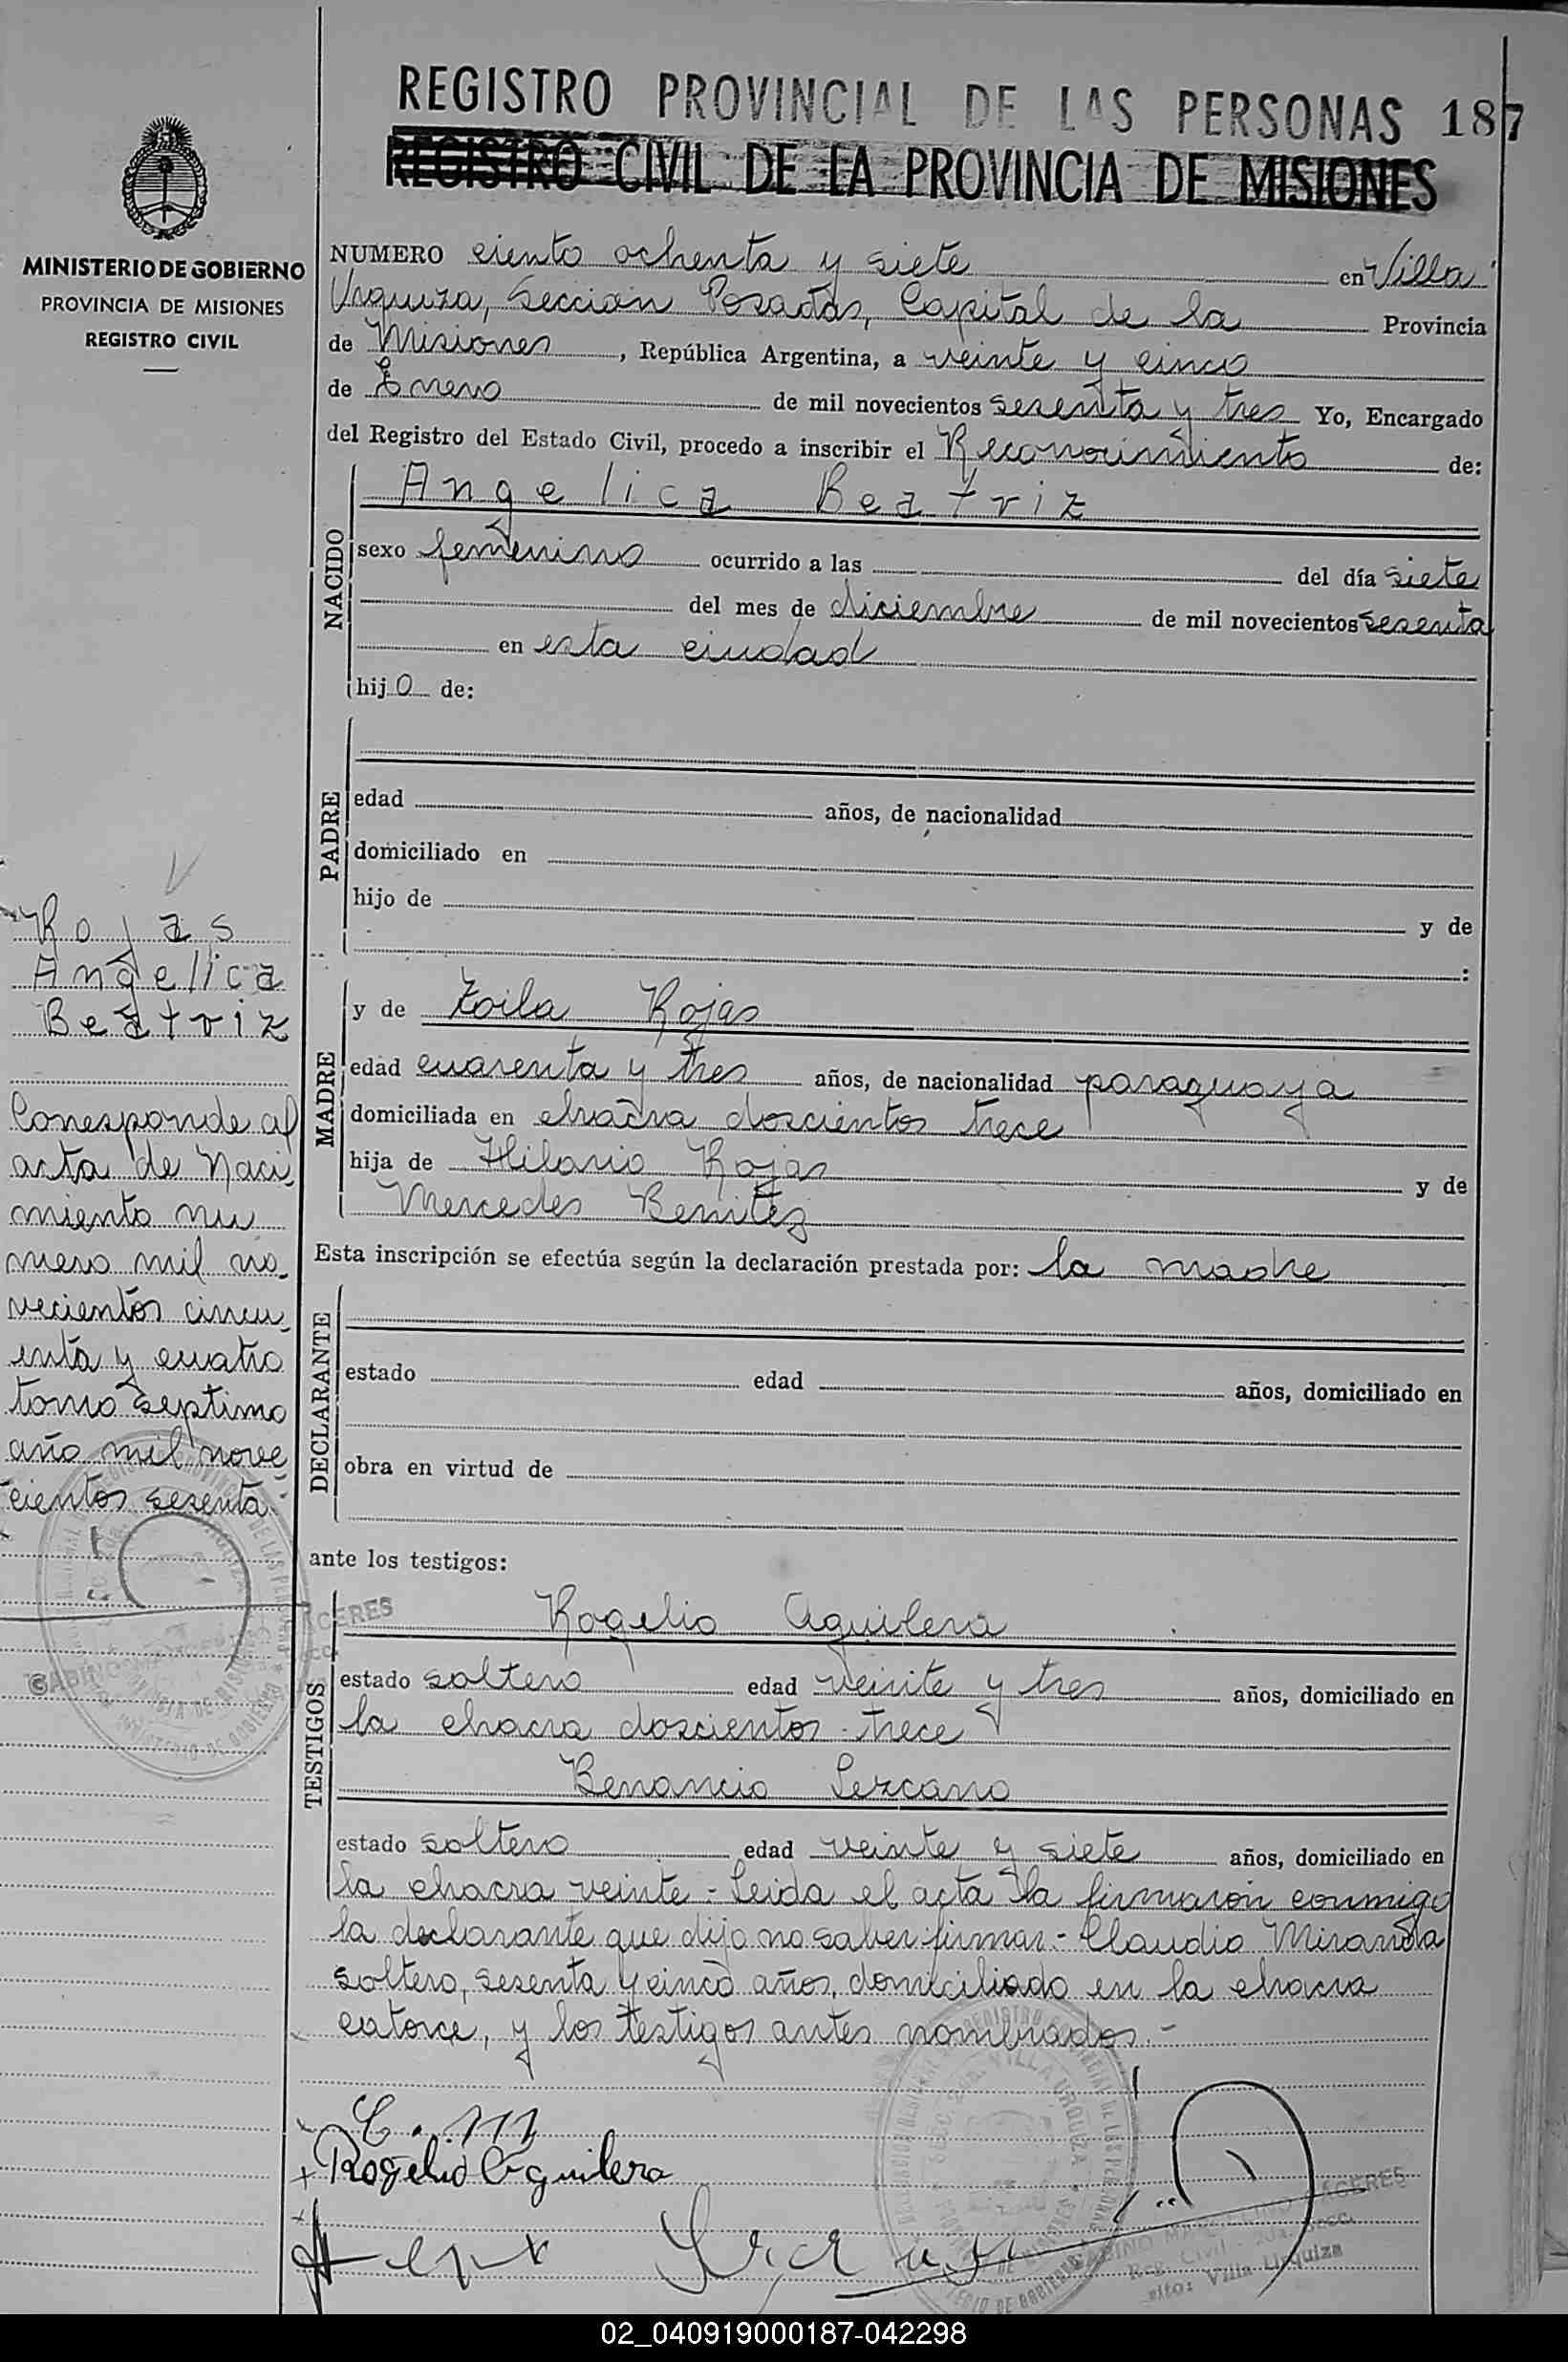 REGISTRO PROVINCIAL DE LAS PERSONAS 187
REGISTRO CIVIL DE LA PROVINCIA DE MISIONES
MINISTERIO DE GOBIERNO
PROVINCIA DE MISIONES
REGISTRO CIVIL
NUMERO ciento ochenta y siete en Villa
Urquiza, Sección Posadas, Capital de la Provincia
de Misiones, República Argentina, a veinte y cinco
de Enero de mil novecientos sesenta y tres Yo, Encargado
del Registro del Estado Civil, procedo a inscribir el Reconocimiento de:
NACIDO
Angelica Beatriz
sexo femenino ocurrido a las del día siete
del mes de diciembre de mil novecientos sesenta
en esta ciudad
hijo de:
PADRE
edad años, de nacionalidad
domiciliado en
hijo de y de
:
Rojas
Angelica
Beatriz
Corresponde al
acta de Naci
miento nu
mero mil no
vecientos cincu
enta y cuatro
tomo septimo
año mil nove
cientos sesenta.-
MADRE
y de Zoila Rojas
edad cuarenta y tres años, de nacionalidad paraguaya
domiciliada en chacra doscientos trece
hija de Hilario Rojas y de
Mercedes Benitez
Esta inscripción se efectúa según la declaración prestada por: la madre
DECLARANTE
estado edad años, domiciliado en
obra en virtud de
ante los testigos:
TESTIGOS
Rogelio Aguilera
estado soltero edad veinte y tres años, domiciliado en
la chacra doscientos trece
Benancio Lezcano
estado soltero edad veinte y siete años, domiciliado en
la chacra veinte.- Leida el acta la firmaron conmigo
la declarante que dijo no saber firmar.- Claudio Miranda
soltero, sesenta y cinco años, domiciliado en la chacra
catorce, y los testigos antes nombrados.-
C. M
Rogelio Aguilera
Reg. Civil - 2da. Secc.
Villa Urquiza
02_040919000187-042298